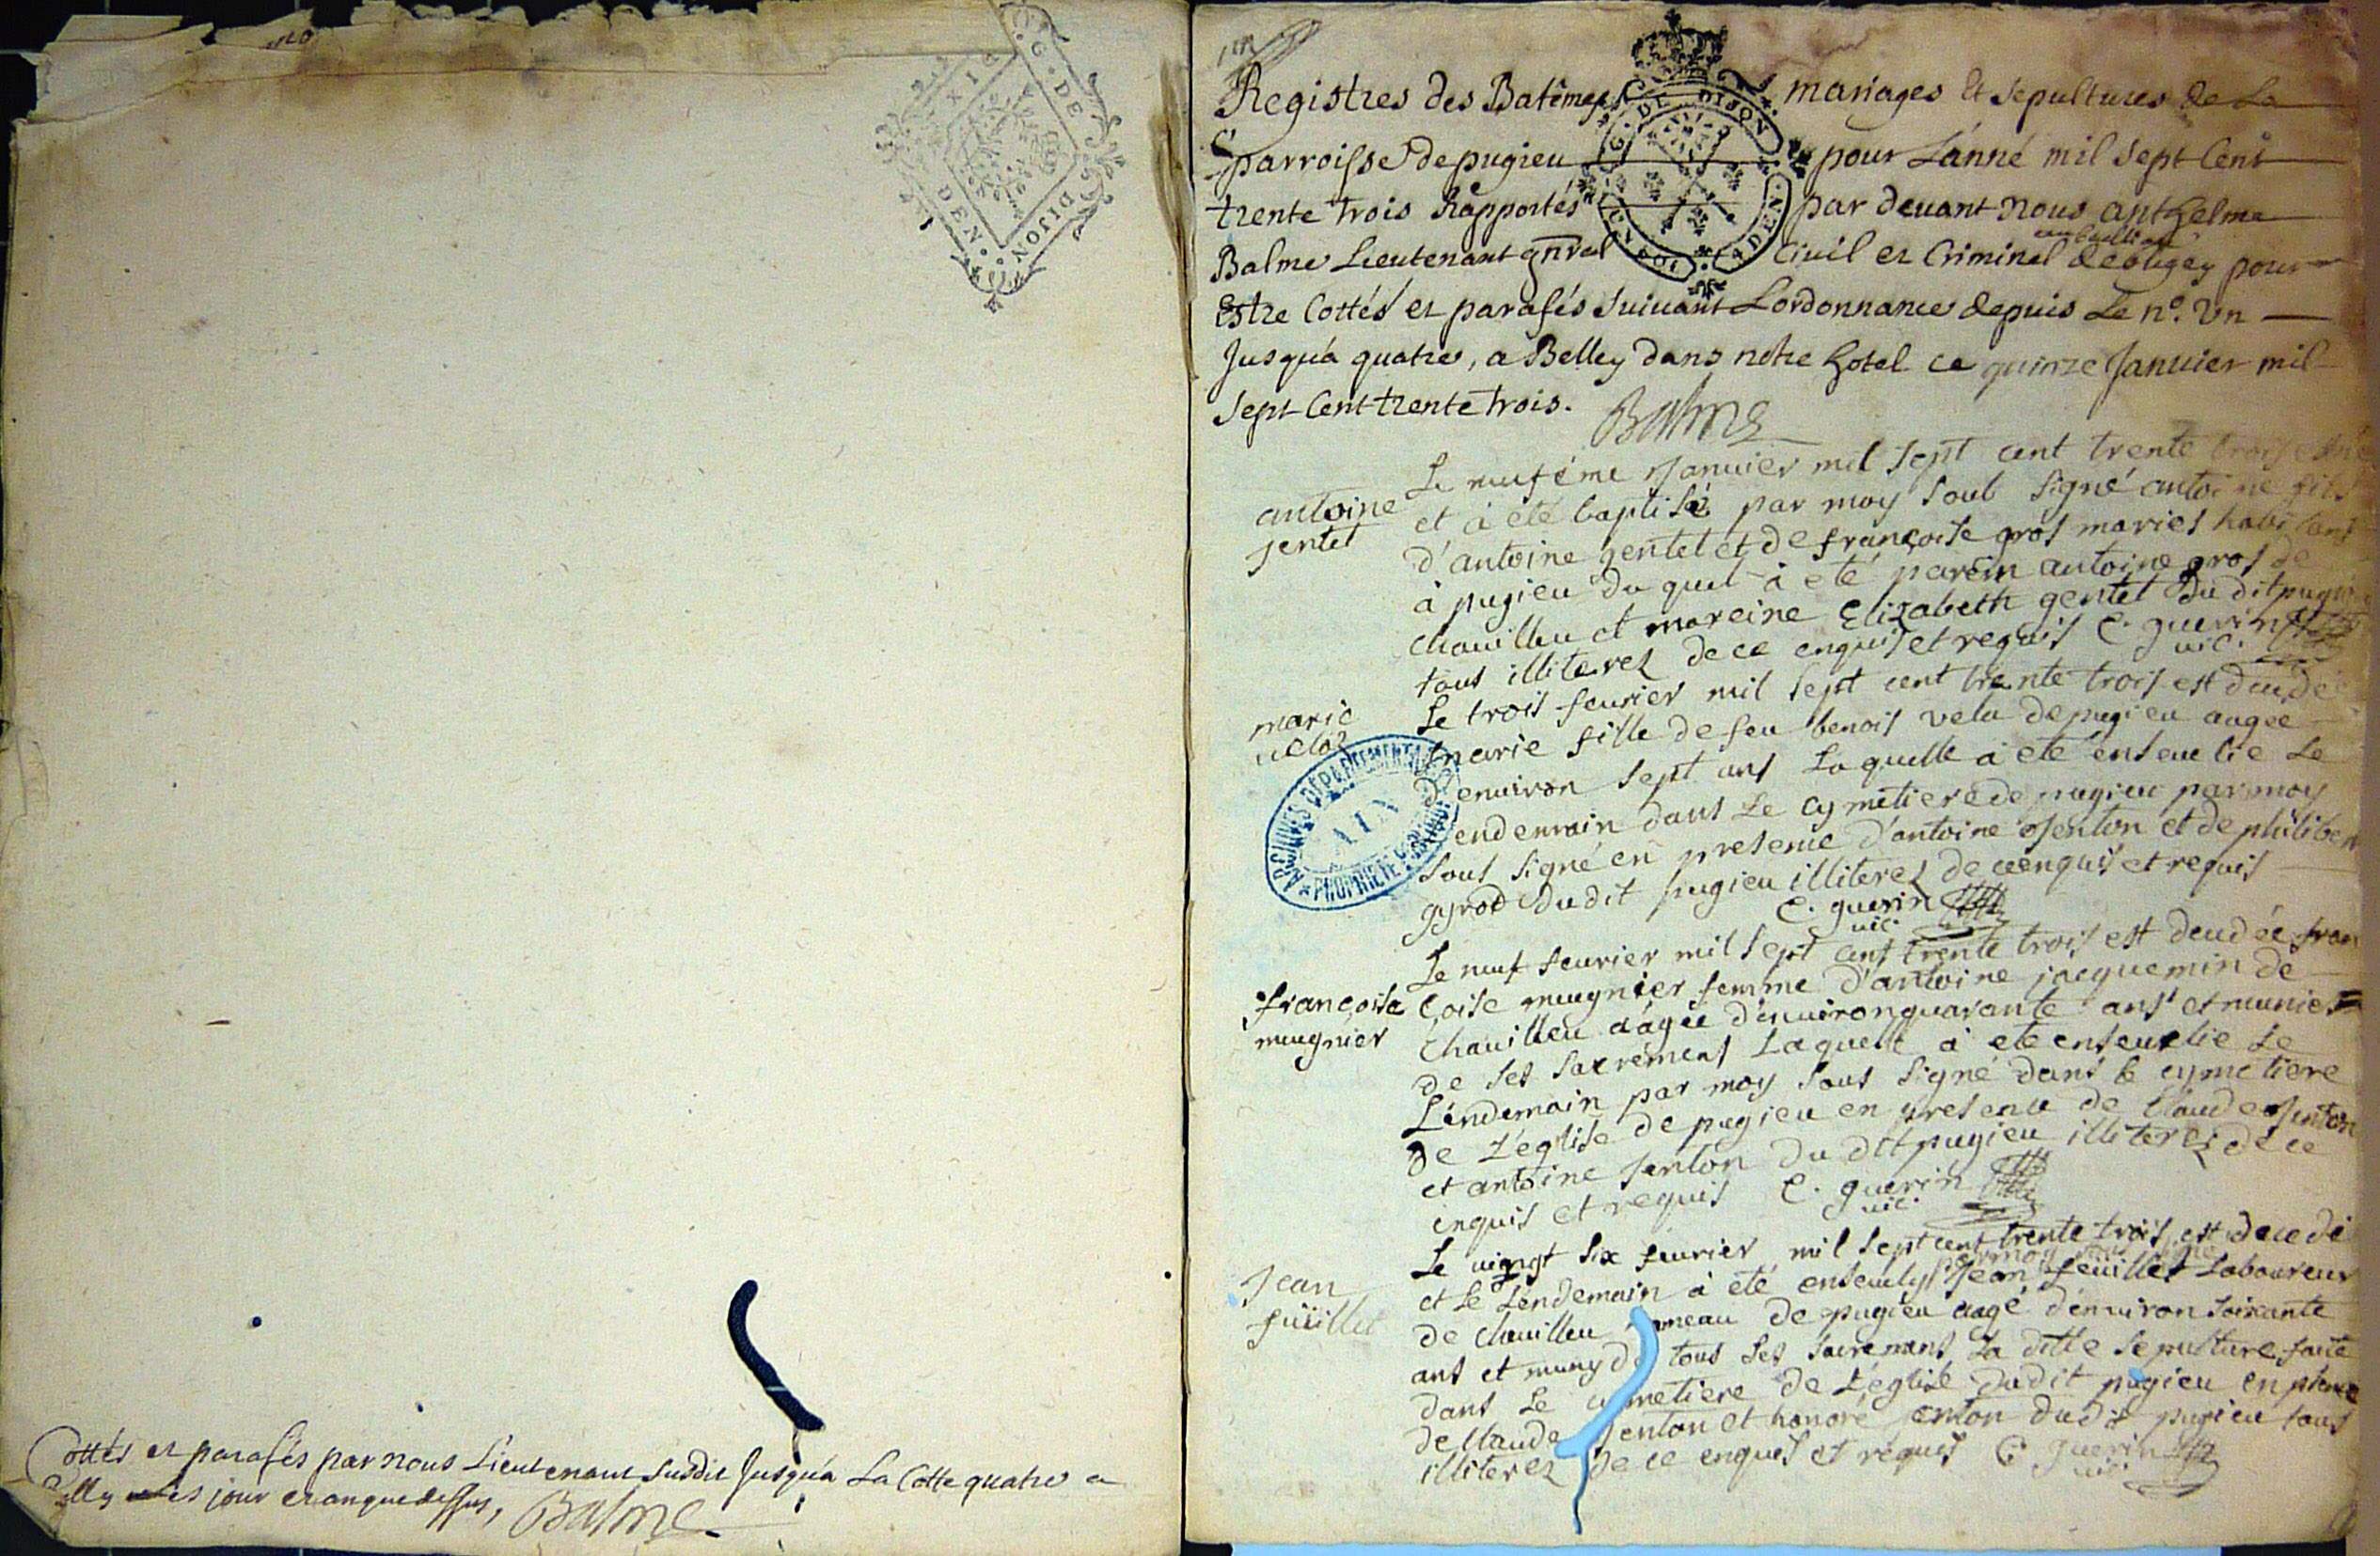 Cottés et parafés par nous Lieutenant susdit Jusqu'a La Cotte quatre a
Belley les jour et an que dessus, Balme
G. DE DIJON
DEN.
Registres des Batêmes mariages et sepultures de La
parroisse de pugieu pour L'anné mil sept Cent
trente trois Rapportés par devant nous anthelme
Balme Lieutenant gnral Civil et Criminel au bailliage de bugey pour
Estre Cottés et parafés suivant Lordonnance depuis Le n.º un
Jusqu'a quatre, a Belley dans notre hotel ce quinze Januier mil
sept Cent trente trois.
Balme
G. DE DIJON
DEN.
antoine
jentet
Le neuféme Januier mil sept cent trente trois est né
et à été baptisé par moy soub signé antoine fils
d'antoine gentet et de françoise gros mariés habitans
à pugieu du quel à eté parein antoine gros de
chauilleu et mareine Elizabeth gentet du dit pugieu
tous illiterez de ce enquis et requis C. guerin
uic.
marie
uelaz
Le trois feurier mil sept cent trente trois est decede
marie fille de feu benois vela de pugieu aagée
d'enuiron sept ans Laquelle à eté enseuelie Le
Lendemain dans Le cymetiere de pugieu par moy
sous signé en presence d'antoine Jenton et de philiber
gyrod du dit pugieu illiterez de ce enquis et requis
C. guerin
uic.
ARCHIVES DÉPARTEMENTALES
AIN
PROPRIÉTÉ PUBLIQUE
françoise
mugnier
Le neuf feurier mil sept cent trente trois est decedée fran
çoise mugnier femme d'antoine jacquemin de
Chauilleu aagée d'enuiron quarante ans et munie
de ses sacréments Laquelle à eté enseuelie Le
Léndemain par moy sous signé dans le cymetiere
de L'église de pugieu en presence de Claude Jenton
et antoine Jenton du dit pugieu illiterez de ce
enquis et requis C. guerin
uic.
Jean
feüillet
Le uingt six feurier mil sept cent trente trois est decedé
et Le Lendemain à été enseuely par moy sous signé Jean feüillet Laboureur
de Chauilleu ameau de pugieu aagé d'enuiron soixante
ans et muny de tous ses sacremens La ditte sepulture faite
dans Le cymetiere de L'église du dit pugieu en pñce
de Claude Jenton et honoré Jenton du dit pugieu tous
illiterez de ce enquis et requis C. guerin
uic.